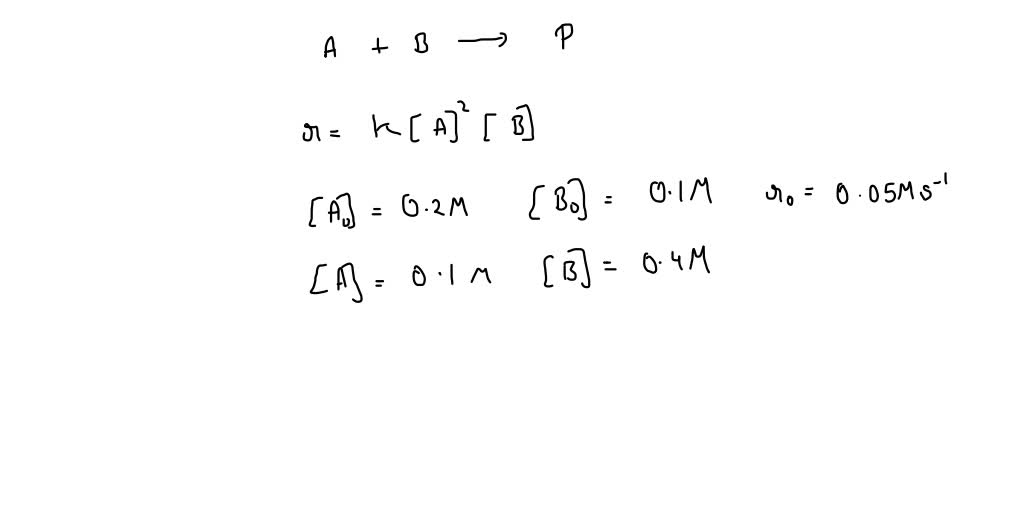 A + B → P
r = k[A]² [B]
[A₀] = 0.2M [B₀] = 0.1M r₀ = 0.05Ms⁻¹
[A] = 0.1M [B] = 0.4M